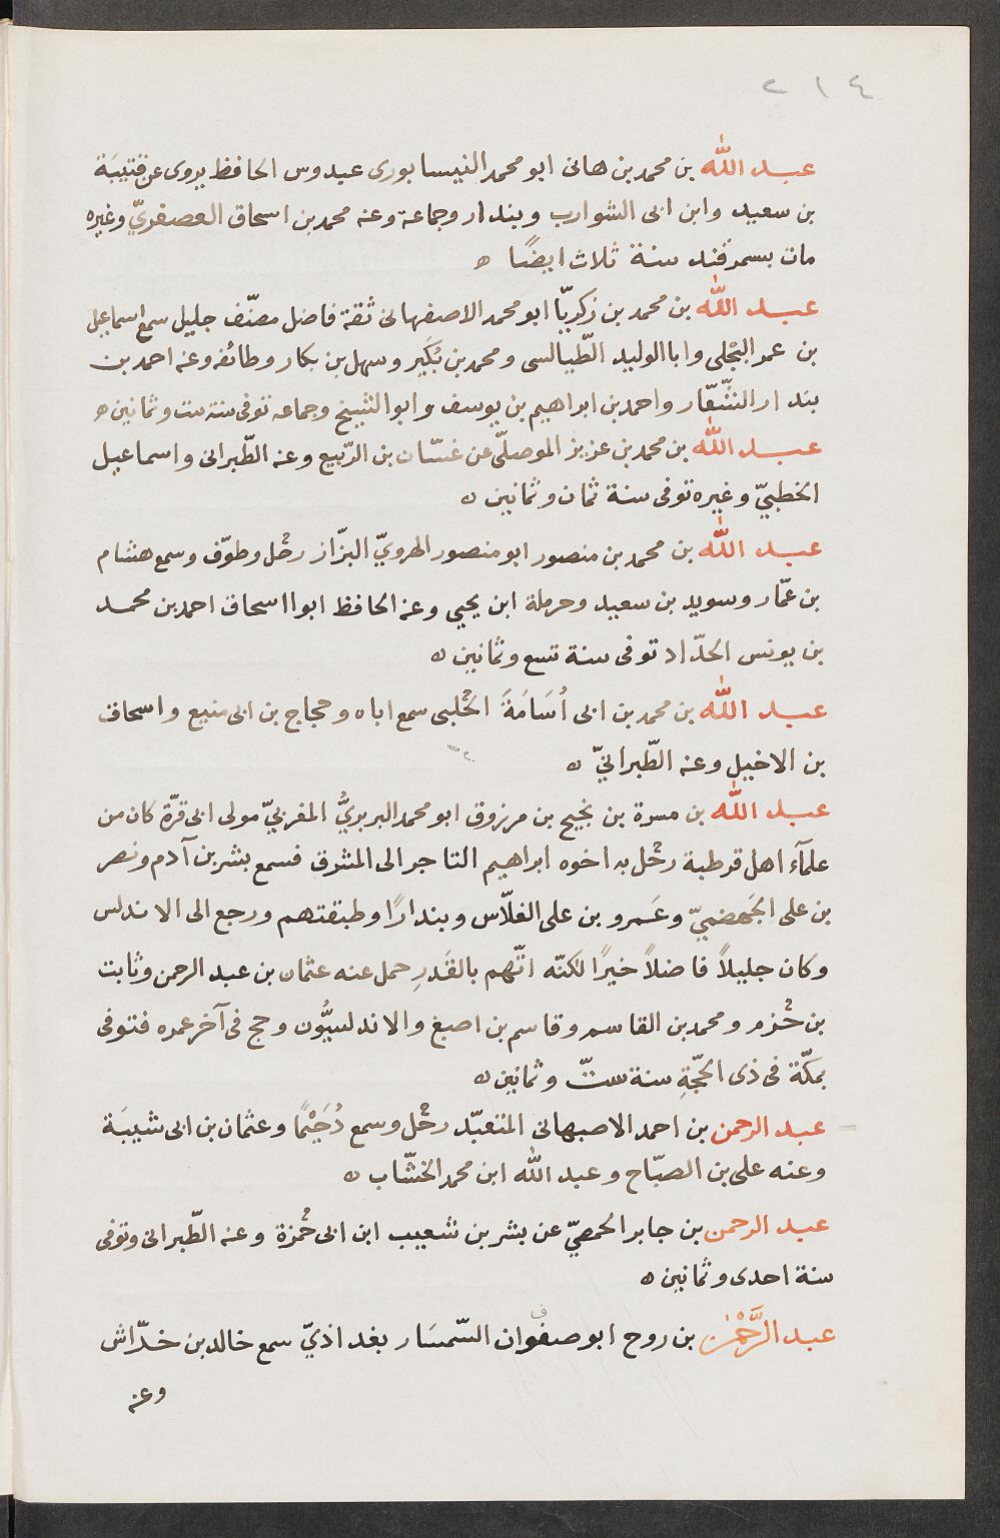 ٢١٤
عبد الله بن محمد بن هانى ابو محمد النيسابورى عبدوس الحافظ يروى عن قتيبَة
بن سعيد وابن ابى الشوارب وبندار وجماعة وعنه محمد بن اسحاق العصفريّ وغيره
مات بسمرقند سنة ثلاث ايضًا ه
عبد الله بن محمد بن زكريّا ابو محمد الاصفهانى ثقة فاضل مصنّف جليل سمع اسماعيل
بن عمر البَجلى وابا الوليد الطّيالسى ومحمد بن بُكَير وسهل بن بكار وطائفه وعنه احمد بن
بندار الشّعّار واحمد بن ابراهيم بن يوسف وابو الشيخ وجماعه توفى سنة ست وثمانين ه
عبد الله بن محمد بن عزيز الموصلّى عن غسّان بن الرّبيع وعنه الطّبرانى واسماعيل
الخطبيّ وغيره توفى سنة ثمان وثمانين ه
عبد الله بن محمد بن منصور ابو منصور الهرويّ البزّاز رحُل وطوّف وسمع هشام
بن عمّار وسويد بن سعيد وحرملة ابن يحيي وعنه الحافظ ابوا اسحاق احمد بن محمد
بن يونس الحدّاد توفى سنة تسع وثمانين ه
عبد الله بن محمد بن ابى اُسَامَةَ الحُلبى سمع اباه وحجاج بن ابى منيع واسحاق
بن الاخيل وعنه الطّبرانيّ ه
عبد الله بن مسرة بن نجيح بن مرزوق ابو محمد البربريُّ المغربيّ مولى ابى قرّة كان من
علمآء اهل قرطبة رحُل به اخوه ابراهيم التاجر الى المشرق فسمع بشر بن آدم ونصر
بن على الجَهضميّ وعَمرو بن على الفلّاس وبندارًا وطبقتهم ورجع الى الاندلس
وكان جليلاً فاضلاً خيرًا لكنّه اتّهم بالقَدرِ حمل عنه عثمان بن عبد الرحمن وثابت
بن حُزم ومحمد بن القاسم وقاسم بن اصبغ والاندلسيُّون وحج فى آخر عمره فتوفى
بمكّة فى ذى الحَجّةِ سنة ستّ وثمانين ه
عبد الرحمن بن احمد الاصبهانى المتعبّد رحُل وسمع دُحَيْمًا وعثمان بن ابى شيبَة
وعنه على بن الصبّاح وعبد الله ابن محمد الخشّاب ه
عبد الرحمن بن جابر الحمصيّ عن بشر بن شعيب ابن ابى حُمزة وعنه الطّبرانى وتوفى
سنة احدى وثمانين ه
عبد الرَّحْمٰن بن روح ابو صفوان السّمسَار بغداذيّ سمع خالد بن خدّاش
وعنه